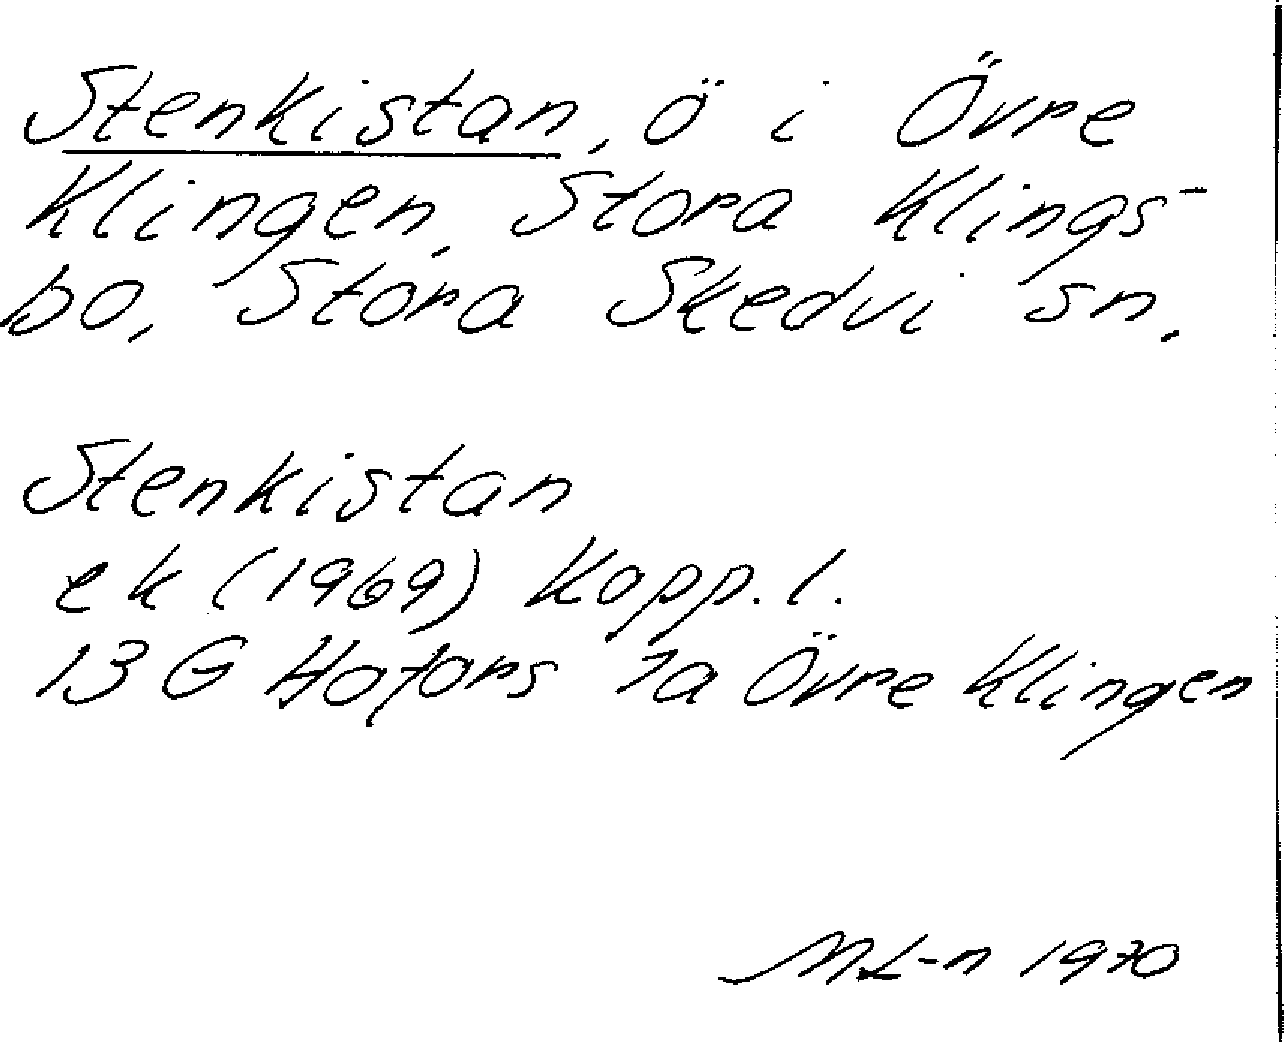 Stenkistan, ö i Övre
Klingen, Stora Klings-
bo, Stora Skedvi sn.
Stenkistan
ek (1969) Kopp. l.
13 G Hofors 7a Övre Klingen
ML-n 1970